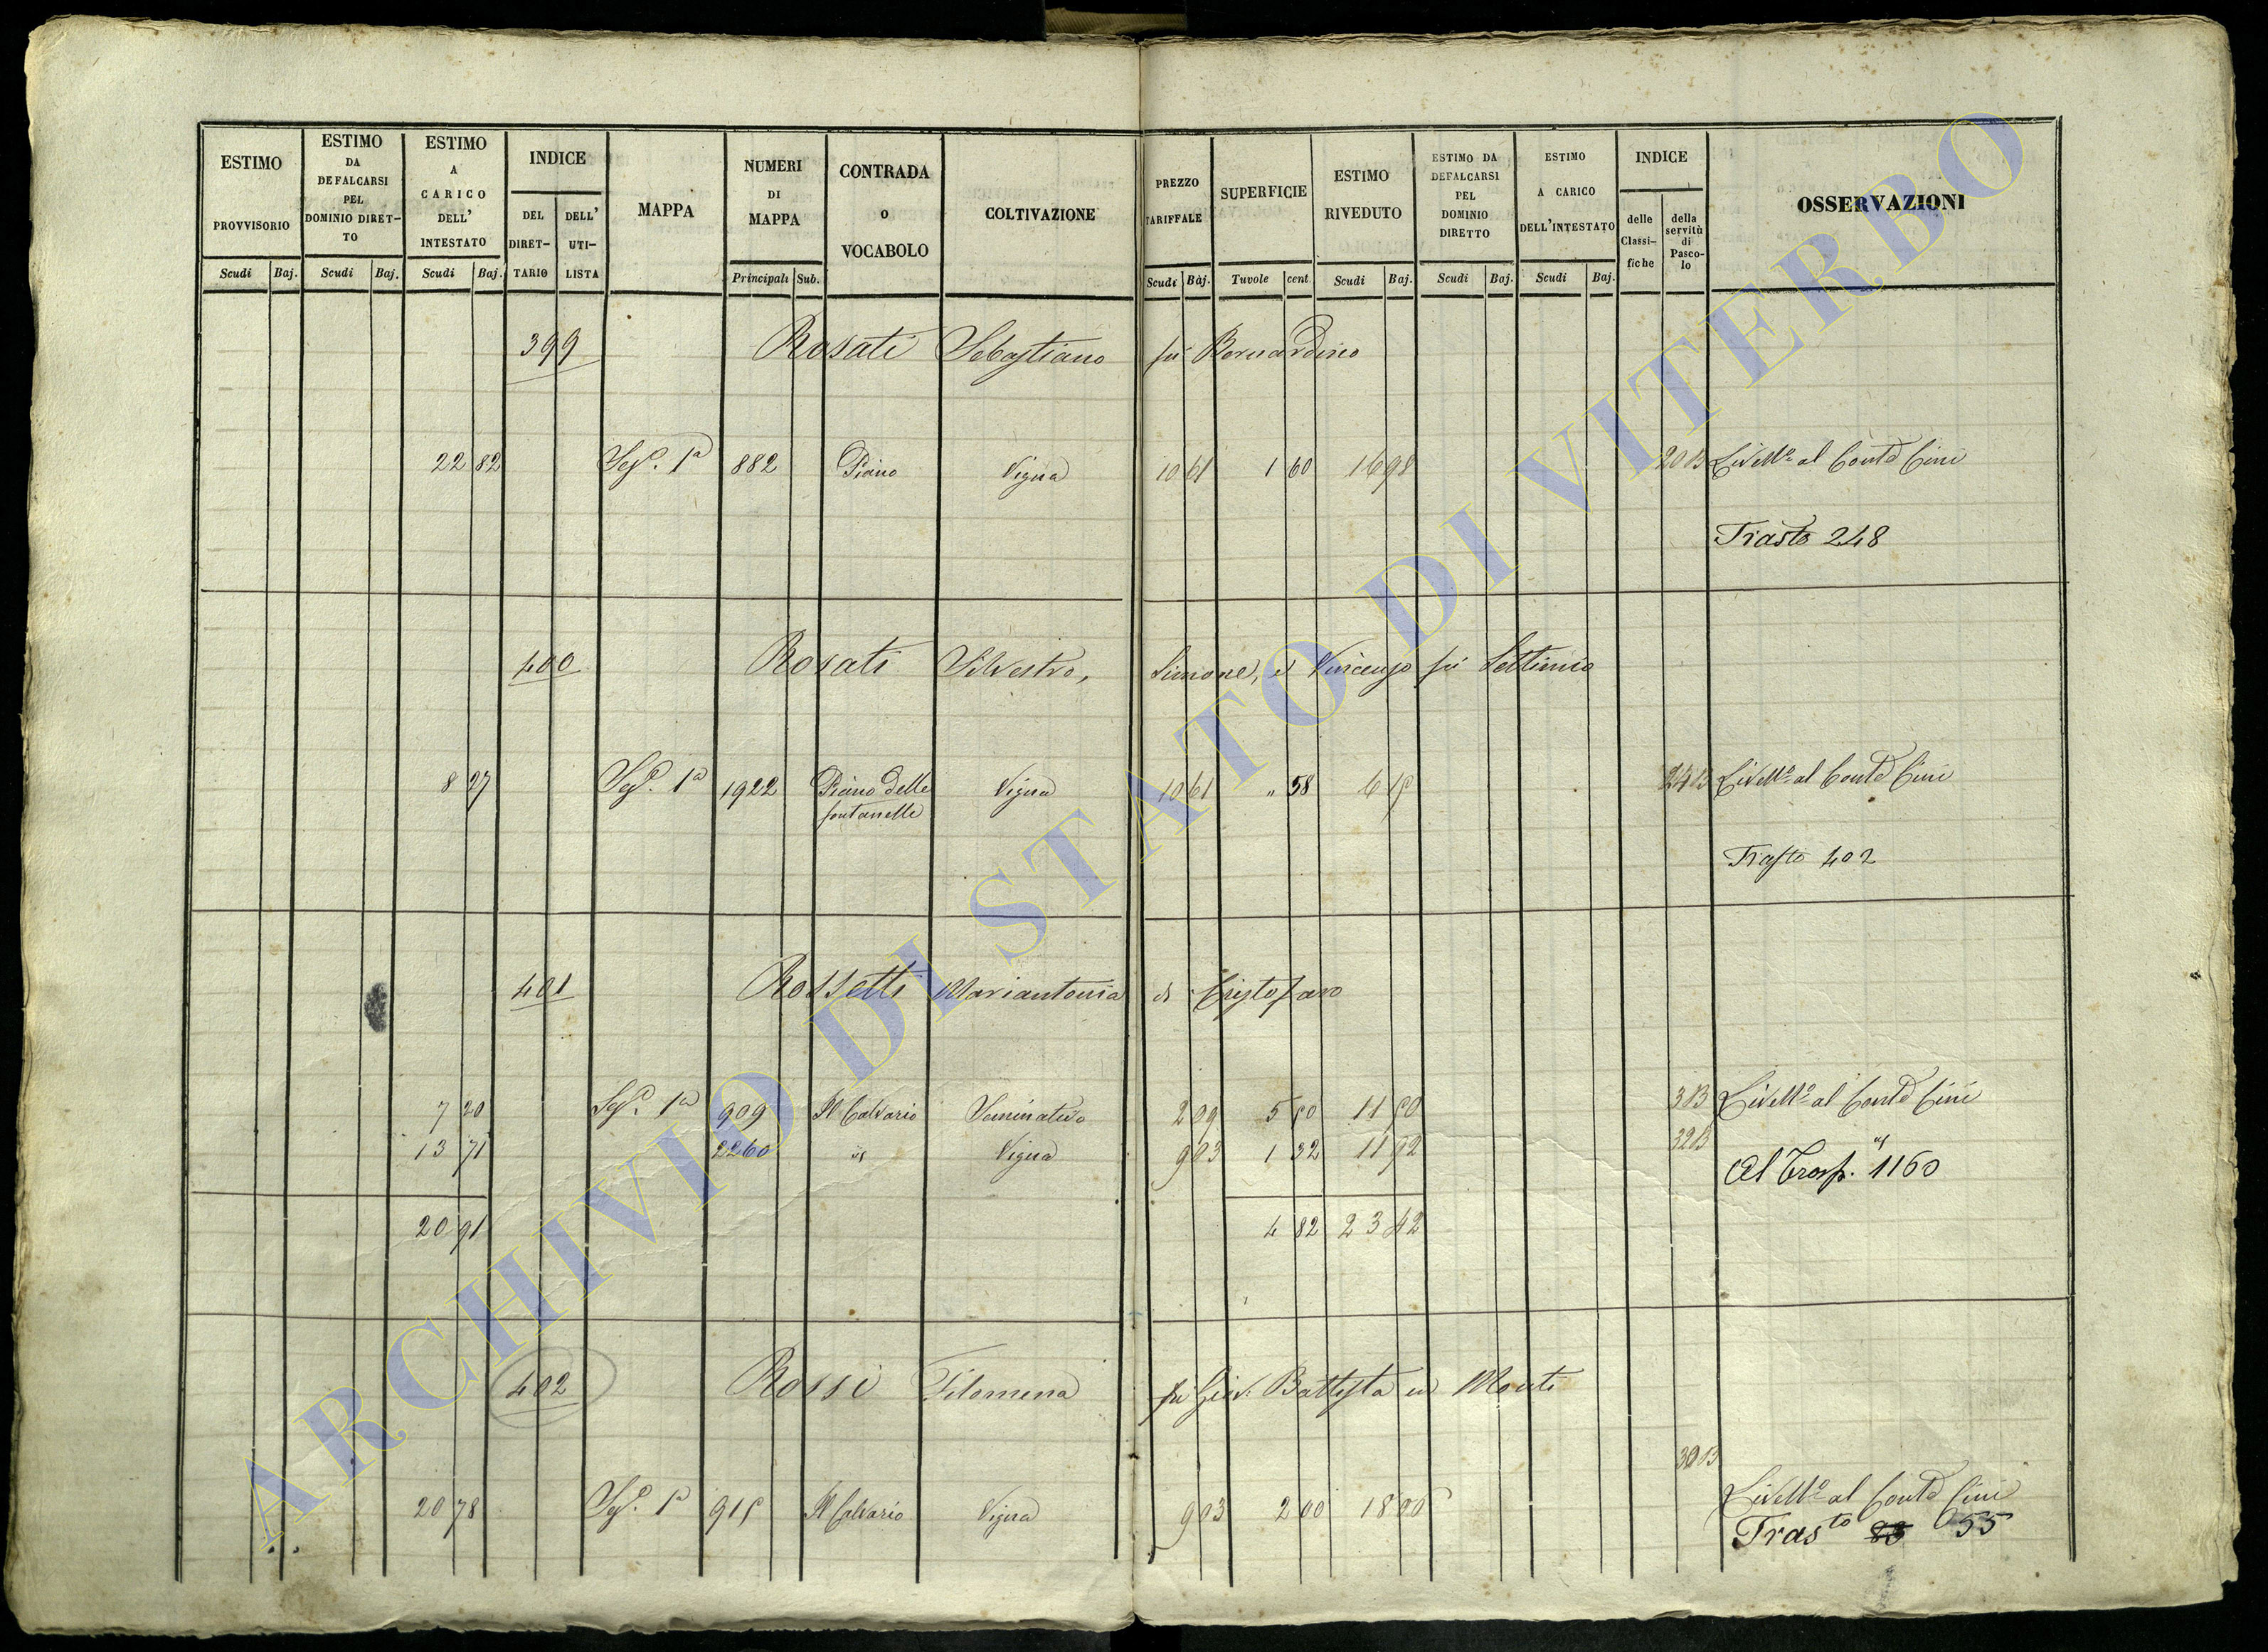 ESTIMO PROVVISORIO
Scudi Baj.
ESTIMO DA DEFALCARSI PEL DOMINIO DIRET-TO
Scudi Baj.
ESTIMO A CARICO DELL' INTESTATO
Scudi Baj.
INDICE
DEL DIRET-TARIO
DELL' UTI-LISTA
MAPPA
NUMERI DI MAPPA
Principali Sub.
CONTRADA o VOCABOLO
COLTIVAZIONE
PREZZO TARIFFALE
Scudi Baj.
SUPERFICIE
Tavole cent
ESTIMO RIVEDUTO
Scudi Baj.
ESTIMO DA DEFALCARSI PEL DOMINIO DIRETTO
Scudi Baj.
ESTIMO A CARICO DELL'INTESTATO
Scudi Baj.
INDICE
delle Classi-fiche
della servitù di Pasco-lo
OSSERVAZIONI
399 Rosati Sebastiano fù Bernardino
22 82 Sez.e 1a 882 Piano Vigna 10 61 1 60 16 98 20 B Livell.o al Conte Cini
Trasto 248
400 Rosati Silvestro, Simone, e Vincenzo fù Settimio
8 27 Sez.e 1a 1922 Piano delle fontanelle Vigna 10 61 " 58 6 15 24 B Livell.o al Conte Cini
Trasto 402
401 Rossetti Mariantonia di Cristofaro
7 20 Sez.e 1a 909 Il Calvario Seminativo 2 09 5 50 11 50 3 B Livell.o al Conte Cini
13 71 2260 id Vigna 9 03 1 32 11 92 32 B id
Al Trasp. 1160
20 91 4 82 23 42
402 Rossi Filomena fù Giov. Battista in Monti
20 78 Sez.e 1a 915 Il Calvario Vigna 9 03 2 00 18 06 30 B Livell.o al Conte Cini
Tras.to 83 55
ARCHIVIO DI STATO DI VITERBO